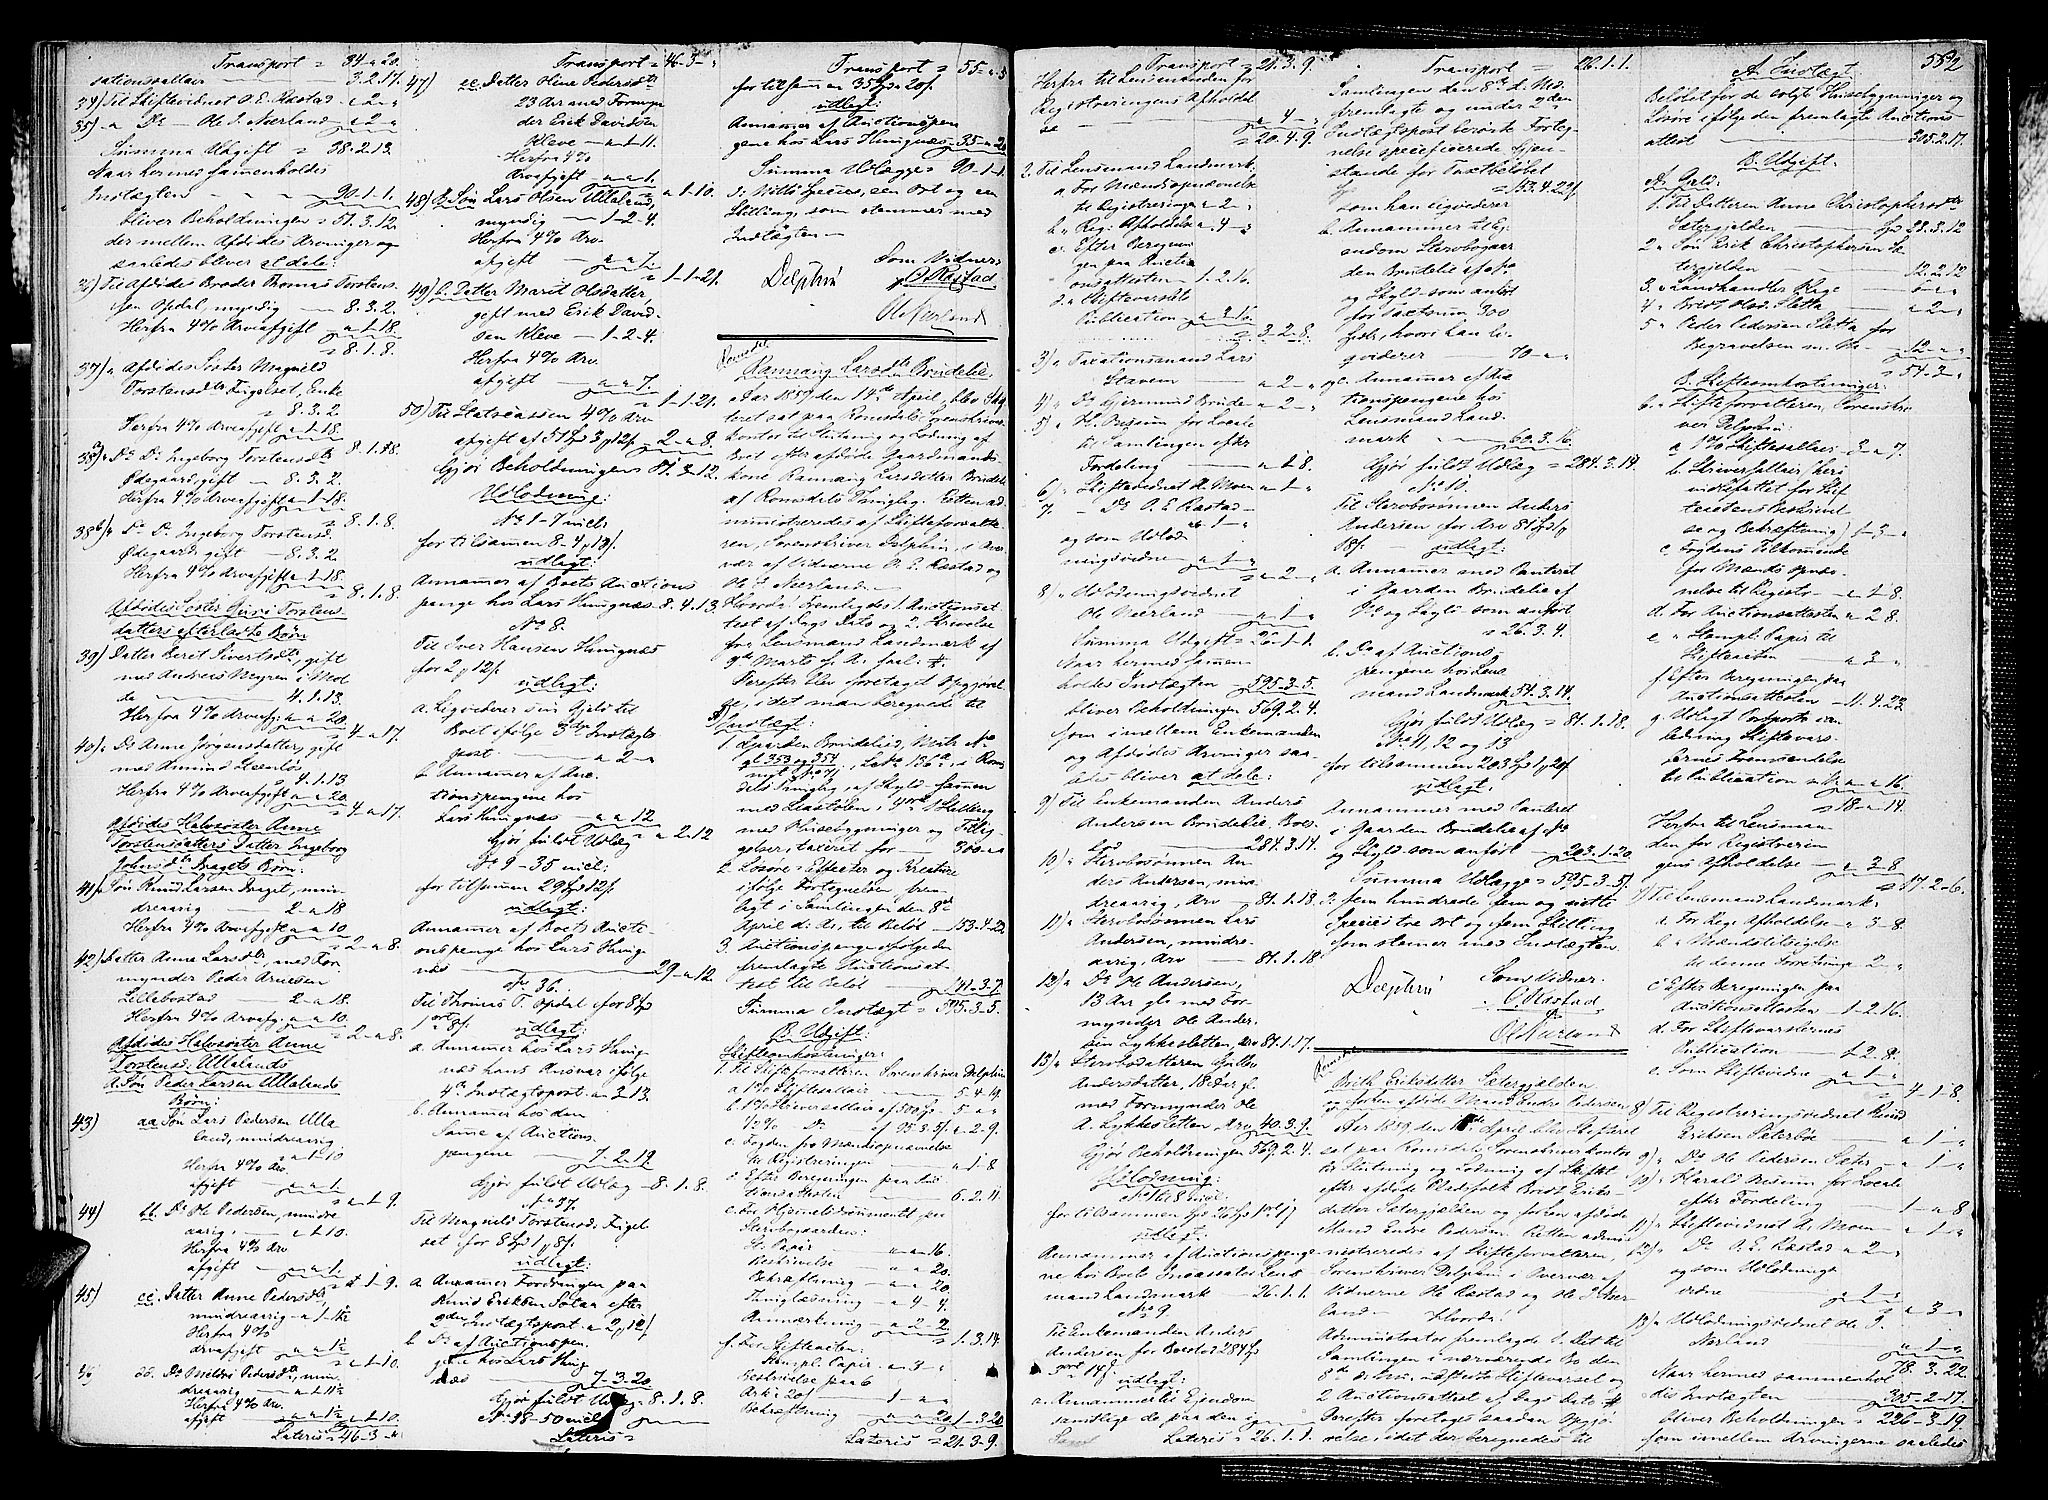 Transport = 34 - a 20.
sationssallair — 3. 2. 17.
34) Til Skiftevidnet O. E. Rastad - a 2 - "
35) " Do — Ole J. Nærland - a 2 - "
Summa Udgift = 38. 2. 13.
Naar hermed sammenholdes
Indtægten — 90. 1. 1.
bliver Beholdningen = 51. 3. 12.
der mellem Afdødes Arvinger og
saaledes bliver at dele:
36) Til Afdødes Broder Thomas Torstens-
sen Opdal, myndig — 8. 3. 2.
Herfra 4% Arveafgift - a 1 - 18.
= 8. 1. 8.
37) " Afdødes Søster Magnild
Torstensdtr Figelset, Enke
= 8. 3. 2.
Herfra 4% Arveafgift - a 1 - 18.
8. 1. 8.
Do Do Ingeborg Torstensdtr
Ødegaard, gift — 8. 3. 2.
Herfra 4% Arveafgift - a 1 - 18.
= 8. 1. 8.
38) Do Do Ingeborg Torstensd.
Ødegaard, gift — 8. 3. 2.
Herfra 4% Arveafgift a - 1 - 18.
= 8. 1. 8.
Afdødes Søster Guri Torstens
datters efterladte Børn
39) Datter Berit Sivertsdtr, gift
med Andreas Meyren i Mol
de — 4. 1. 13.
Herfra 4% Arveafg: a - a 20.
= 4 - a 17.
40) " Do Anne Jørgensdatter, gift
med Amund
= 4. 1. 13
Herfra 4% Arveafgift a - a 20
= 4 - a 17.
Afdødes Halvsøster Anne
Torstensdatters Datter Ingeborg
Johnsdtr Dragets Børn:
41) Søn Knud Larsen Draget, min-
dreaarig — 2 - a 18
Herfra 4% Arveafgift a - a 10.
= 2 - a 8.
42) Datter Anne Larsdtr, med For
mynder Peder Arnesen
Lillebostad — 2 - a 18.
Herfra 4% Arveafg. - a - a 10.
= 2 - a 8.
Afdødes Halvsøster Anne
Torstensd. Ullalands
A. Søn Peder Larsen Ullalands
Børn:
43) aa Søn Lars Pedersen Ulla
land, mindreaarig
= a 1 - 10
Herfra 4% Arv-
afgift — a - a 1.
= a 1 - 9.
44) bb. Do Ole Pedersen, mindre
aarig. — a 1 - 10.
Herfra 4% Arv
afgift — a - a 1.
= a 1 - 9.
45) cc. Datter Anne Pedersdtr,
mindreaarig - a 1 - 11½
Herfra 4%
Arveafgift — a - a 1½
= a 1 - 10.
46 dd. Do Pedersdtr, min-
dreaarig — a 1 - 11½
Herfra 4% Arv.
afgift — a - a 1½
= a 1 - 10.
Lateris = 46 - 3 - a
Transport = 46 - 3 - "
47) ee. Datter Oline Pedersdtr
23 Aar med Formyn
der Erik Davidsen
Kleve — a 1 - 11.
Herfra 4%
Arveafgift — a - a 1.
= a 1 - 10.
48) B. Søn Lars Olsen Ullaland,
myndig — 1 - 2 - 4.
Herfra 4% Arv.
afgift — a - a 7.
= 1 - 1 - 21.
49) C. Datter Marit Olsdatter,
gift med Erik David-
sen Kleve — 1 - 2 - 4.
Herfra 4% Arv.
afgift — a - a 7.
= 1 - 1 - 21.
50) Til Statscassen 4% Arv
afgift af 51 Spd 3 12 - 2 - a 8.
Gjør Beholdningen 51. 3. 12.
Udlodning:
No 1 - 7 incl.
for tilsammen 8 - 4 - 13
udlagt:
Annammer af Boets Auctions
penge hos Lars Haugnæs 8. 4. 13.
No 8.
Til Iver Hansen Haugnæs
for 2 12
udlagt:
a. Liqviderer sin Gjæld til
Boet ifølge 3die Indtægts
post — a 2 - a
b. Annammer af Auc.
tionspengene hos
Lars Haugnæs — a - a 12
Gjør fuldt Udlæg = a 2. 12
No 9 - 35 incl.
for tilsammen 29 Spd 12
udlagt:
Annammer af Boets Aucti
onspenge hos Lars Haug
næs — 29 - a 12.
No 36.
Til Thomas T. Opdal for 8 Spd
1 ort 8
udlagt:
a. Annammer hos Lars Haug
næs hans Ansvar ifølge
4de Indtægtspost - a 3. 13.
b. Annammer hos den
Samme af Auctions.
pengene — 7. 2. 19.
Gjør fuldt Udlæg — 8. 1. 8.
No 37.
Til Magnild Torstensd. Figel
set for 8 Spd 1 8
udlagt:
a Annammer Fordringen paa
Knud Eriksen Sotaa efter
2den Indtægtspost - a 2 12
b Do af Auctionspen.
gene hos Lars Haug
næs — 7. 3. 20
Gjør fuldt Udlæg = 8. 1. 8.
No 38 - 50 incl.
Lateris =
Transport = 55 - a 5
for tilsammen 35 Spd 20
udlagt:
Annammer af Auctionspen
gene hos Lars Haugnæs - 35 - a 20
Summa Udlægges 90 - 1 - 1.
= Nitti Species, een Ort og een
Skilling, som stemmer med
Indtægten —
Som Vidner:
Delphin
O Rastad
Ole Nærland
Romsdal
Rannaug Larsdtr Brudelie.
Aar 1859 den 14de April, blev Skif
teret sat paa Romsdals Sorenskriver
kontor til Slutning og Lodning af
Boet efter afdøde Gaardmands-
kone Rannaug Larsdatter Brudelie
af Romsdals Thinglag. Retten ad
ministreredes af Skifteforvalte-
ren, Sorenskriver Delphin, i Over
vær af Vidnerne O. E. Rastad og
Ole J. Nærland. —
Hvorda! Fremlagdes 1. Auctionsat
test af Dags Dato og 2. Skrivelse
fra Lensmand Landmark af
9de Marts f. A. saal: #.
Derefter blev foretaget Opgjørel
se, idet man beregnede til
A Indtægt:
1. Gaarden Brudelied, Matr. No
gl 353 og 354
nyt No 41, Løbe 136a, i Roms
dals Thinglag, af Skyld sammen
med Leastolen i 4 ort 8 Skilling
med Husebygninger og Tillig-
gelser, taxeret for — 300 - a a
2. Løsøre: Effecter og Kreature
ifølge Fortegnelsen, frem-
lagt i Samlingen den 8de
April d: Ar, til Beløb — 153 - 4 - 22
3. Auctionspenge ifølge den
fremlagte Auctionsat
test til Beløb — 141 - 3. 7.
Summa Indtægt = 595 - 3. 5.
B. Udgift.
Skifteomkostninger:
1. Til Skifteforvalteren Sorenskriver Delphin
a 1% Skiftesallair — 5 - 4 - 19.
b. 1% Skriversallair af 500 — 5 - a "
½% Do — af 95. 3. 5 - a 2 - 9.
c. Fogden for Mændsopnævnelse
til Registreringen — a 1. 8
d Efter Beregningen paa Auc
tionsattesten — 6. 2. 11.
e. For Hjemmelsdocument paa
Sterbogaarden:
St. Papir — a - a 16.
Beskrivelse — a - a 20.
Bekræftning — a - a 20
Thinglæsning — a 4 - 4.
Anmærkning — a - 2 - 2.
= 1. 3. 14
f. For Skifteacten:
Stempl. Papir — a 3 - "
Beskrivelse paa 6
Ark à 20 — 1 - a - a
Bekræftning — a - a 20. 1 - 3. 20
Lateris = 21 - 3 - 9.
552
Transport = 21. 3. 9.
Herfra til Lensmanden for
Registreringens Afholdel
se — a 4 - "
= 20. 4. 9.
2. Til Lensmand Landmark:
a For Mændsopnævnelse
til Registreringen - a 2 - "
b " Reg: Afholdelse - a 4 - "
c. Efter Beregnin
gen paa Auctio
onsattesten — 1. 2. 16.
d. " Skiftevarslets
Publication — a - a 16.
= 3. 2. 8.
3) " Taxationsmand Lars
Stavem — a 2 - "
4) " Do Gjermund Brude a 2 - "
5) " H. Bersum for Locale
til Samlingen efter
Fordeling — a 1 8.
6) " Skiftevidnet A. Moen - a 1 - "
7. " Do O. E. Rastad -
a 1 - "
og som Udlod
ningsvidne — a 1 - "
= a 2 - "
8) " Udlodningsvidnet
Ole Nærland — a 1 - "
Summa Udgift = 26 - 1 - 1.
Naar hermed sammen-
holdes Indtægten — 595. 3. 5.
bliver Beholdningen 569. 2. 4.
som imellem Enkemanden
og Afdødes Arvinger saa
ledes bliver at dele:
9) Til Enkemanden Anders
Andersen Brudelie, Boes
lod — 284. 3. 14.
10) " Sterbosønnen An
ders Andersen, min-
dreaarig, Arv — 81. 1. 18.
11) " Sterbosønnen Lars
Andersen, mindre-
aarig, Arv — 81. 1. 18
12) " Do Ole Andersen,
13 Aar gl. med For-
mynder Ole Ander-
sen Lykkesletten, Arv 81. 1. 17.
13) " Sterbodatteren
Andersdatter, 18 Aar gl.
med Formynder Ole
A. Lykkesletten, Arv 40. 3. 9.
Gjør Beholdningen 569. 2. 4.
Udlodning:
No 1 til 8 incl.
for tilsammen 26 Spd 1 ort 1
udlagt:
Annammer af Auctionspenge
ne hos Boets Incassator Lens
mand Landmark — 26. 1. 1.
No 9
Til Enkemanden Anders
Andersen for Boeslod 284 Spd
3 ort 14
udlagt:
a. Annammer til Ejendom
samtlige de paa den
Lateris = 26. 1. 1.
Transport = 26. 1. 1.
Samlingen den 8de d. Md.
fremlagte og under 2den
Indtægtspost berørte Forteg-
nelse specificerede Gjen-
stande for Taxtbeløbet
= 153. 4. 22
som han liqviderer
b. Annammer til Ej-
endom Sterbogaar
den Brudelie af No
og Skyld som anført
for taxtsum 300
Spd, hvori han li-
qviderer — 70 - a "
c. Annammer af Auc
tionspengene hos
Lensmand Land-
mark — 60. 3. 16.
Gjør fuldt Udlæg = 284. 3. 14.
No 10.
Til Sterbosønnen Anders
Andersen for Arv 81 Spd 1
18 — udlagt:
a. Annammer med Panteret
i Gaarden Brudelie af
No og Skyld som anført
= 26. 3. 4.
b. Do af Auctions-
pengene hos Lens
mand Landmark 54. 3. 14.
Gjør fuldt Udlæg = 81. 1. 18.
No 11, 12 og 13
for tilsammen 203 Spd 1 20
udlagt:
Annammer med Panteret
i Gaarden Brudelie af No
og Skyld som anført — 203. 1. 20.
Summa Udlægges 595 - 3 - 5.
= fem hundrede fem og nitte
Species tre ort og fem Skilling
som stemmer med Indtægten
Som Vidner.
Delphin
O. Rastad
Ole Nærland
Romsdal
Brith Eriksdatter Sætergjelden
og forhen afdøde Mand Endre Pedersen
Aar 1859, den 14de April blev Skifteret
sat paa Romsdals Sorenskriverkontor
til Slutning og Lodning af Skiftet
efter afdøde Pladsfolk Brit Eriks-
datter Sætergjelden og forhen afdøde
Mand Endre Pedersen. Retten admi-
nistreredes af Skifteforvalteren,
Sorenskriver Delphin i Overvær af
Vidnerne Ole Rastad og Ole J. Nær
land — Hvorda!
Administrator fremlagde 1. Det til
Samlingen i nærværende Bo den
8de d. Md. udstedte Skiftevarsel og
2 Auctionsattest af Dags Dato #
Derefter foretoges saadan Opgjø-
relse, idet der beregnedes til
A. Indtægt
Beløbet for de solgte Husebygninger og
Løsøre ifølge den fremlagte Auctions
attest — 305. 2. 17.
B. Udgift.
A. Gjæld:
1. Til Datteren Anne Christophersdtr
Sætergjelden — Spd 28. 3. 12
2 " Søn Erik Christophersen Sæ
tergjelden — 12. 2. 12
3. " Landhandler Rage — 6 - a -
4 " Brit Olsd. Sletta — a 2 - "
5 " Peder Pedersen Sletta for
Begravelsen m. M. — 12 - a "
= 54 - 3 - "
B. Skifteomkostninger:
6. " Skifteforvalteren, Sorenskri
ver Delphin:
a 1% Skiftesallair — 3 - a 7.
b. Skriversallair (heri
indbefattet for Skif
teactens Beskrivel
se og Bekræftning) 1 - 3 - "
c. Fogdens Tilkommende
for Mænds opnæv
nelse til Registr — a 1 - 8
d. For Auctionsattesten - a 2 8.
e. " Stempl. Papir til
Skifteacten — a 3 - "
f. Efter Beregningen paa
Auctionsattesten — 11. 4. 23.
g. Udlagt Postporto i an
ledning Skiftevars-
lernes Fremsendelse
til Publication m. M. a - a 16.
= 18 - a 14.
Herfra til Lensman
den for Registrerin
gens Afholdelse — a 3 - 8
= 17. 2 - 6.
7) Til Lensmand Landmark:
a For Reg: Afholdelse - a 3 - 8
b " Mændstilsigelse
til denne Forretning a 2 - "
c Efter Beregningen paa
Auctionsattesten — 1 - 2. 16.
d. For Skiftevarslernes
Publication — 1 - 2. 8.
e. Som Skiftevidne — a 1 - "
= 4 - 1 - 8.
8) Til Registreringsvidnet Knud
Eriksen Sæterbøe — a 1 - "
9) " Do Ole Pedersen Sæter — a 1 - "
10) " Harald Bersum for Locale
efter Fordeling — 1 - a 8
11) " Skiftevidnet A. Moen — a 1 - "
12) " Do O. E. Rastad a 2 - "
og som Udlodnings
vidne — a 1 - "
a 3 - "
13) " Udlodningsvidnet Ole J.
Nærland — a 1 - "
78. 3. 22.
Naar hermed sammenhol
des Indtægten — 305 - 2 - 17.
bliver Beholdningen = 226 - 3. 19.
som imellem Arvingerne saaledes